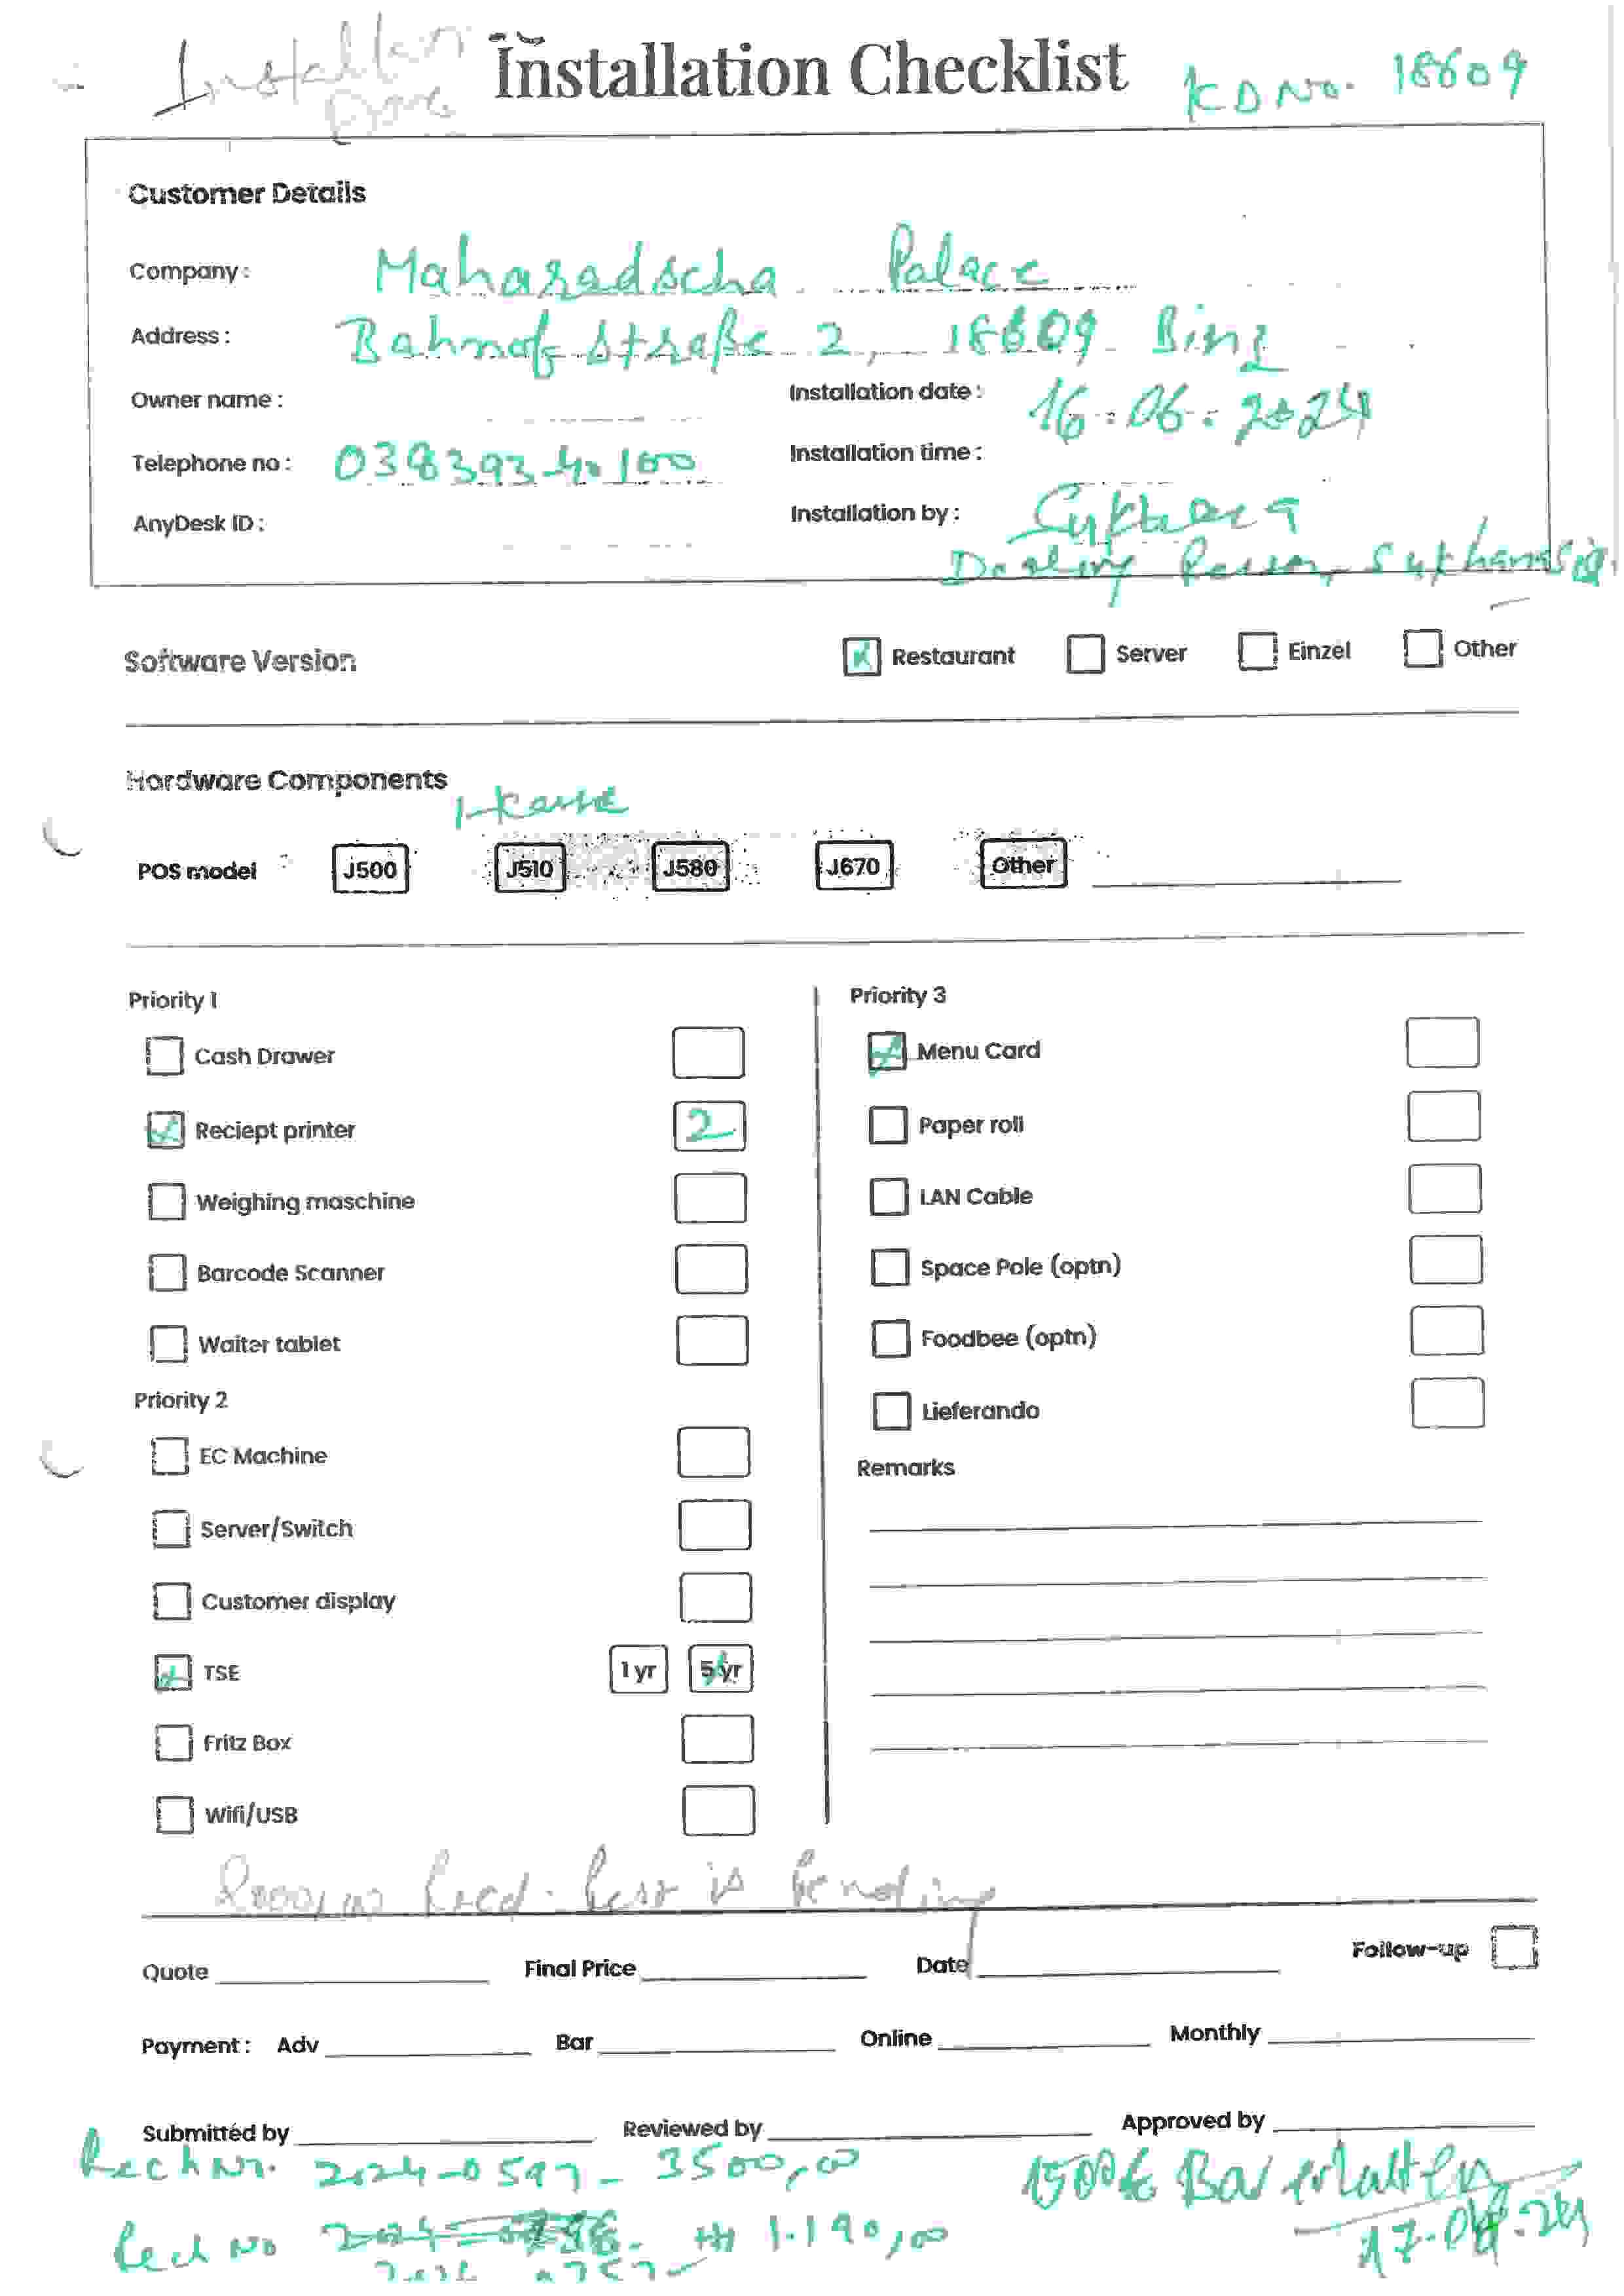 Installation Checklist KD No. 18609
Customer Details
Company : Maharadscha Palace
Address : Bahnhofstraße 2, 18609 Binz
Owner name :
Installation date : 16.06.2024
Telephone no : 038393 40100
Installation time :
AnyDesk ID :
Installation by :
Software Version Restaurant Server Einzel Other
Hardware Components
1-Kasse
POS model J500 J510 J580 J670 Other
Priority 1
Cash Drawer
Reciept printer 2
Weighing maschine
Barcode Scanner
Waiter tablet
Priority 2
EC Machine
Server/Switch
Customer display
TSE 1 yr 5 yr
Fritz Box
Wifi/USB
Priority 3
Menu Card
Paper roll
LAN Cable
Space Pole (optn)
Foodbee (optn)
Lieferando
Remarks
Rest is Pending
Quote Final Price Date Follow-up
Payment : Adv Bar Online Monthly
Submitted by Reviewed by Approved by
Rech Nr. 2024-0597 - 3500,00
1500€ Bar erhalten
Rech No 1.190,00